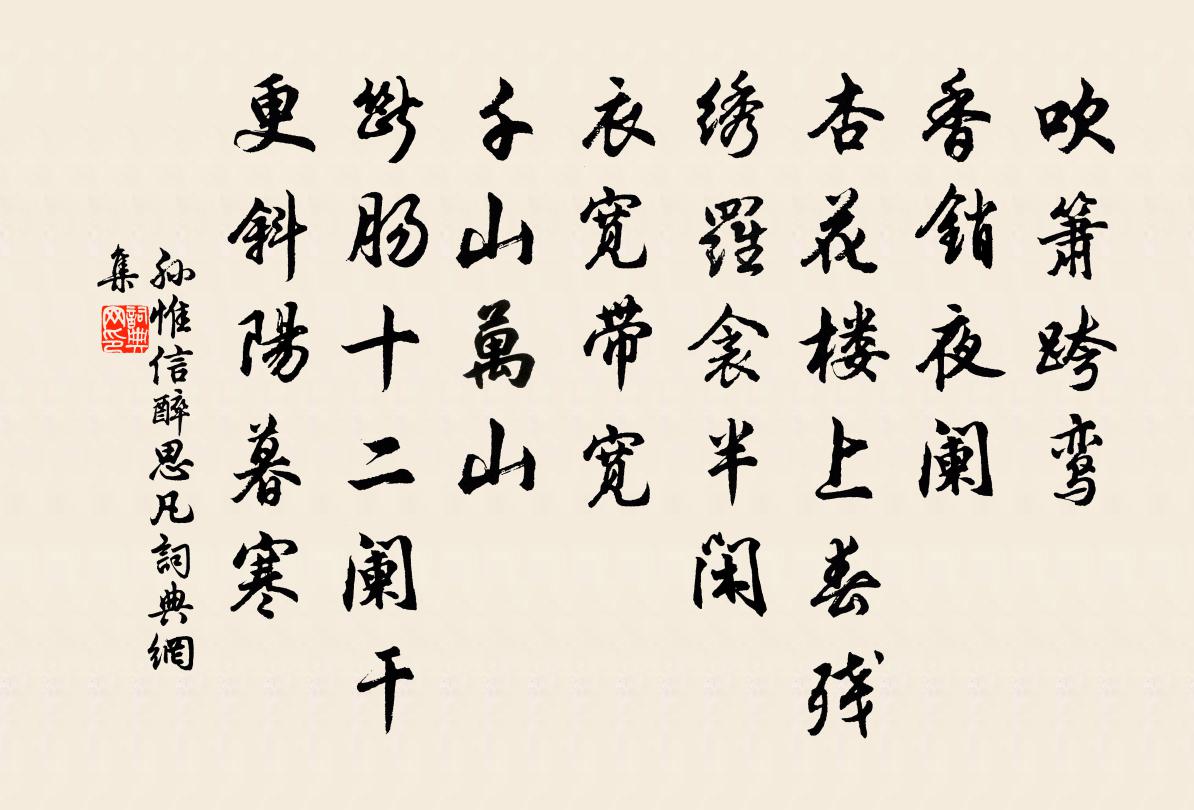 吹箫跨鸾
香銷夜阑
杏花楼上春残
绣羅衾半闲
衣宽带宽
千山萬山
断肠十二阑干
更斜陽暮寒
孙惟信醉思凡詞典網
集
詞典网印